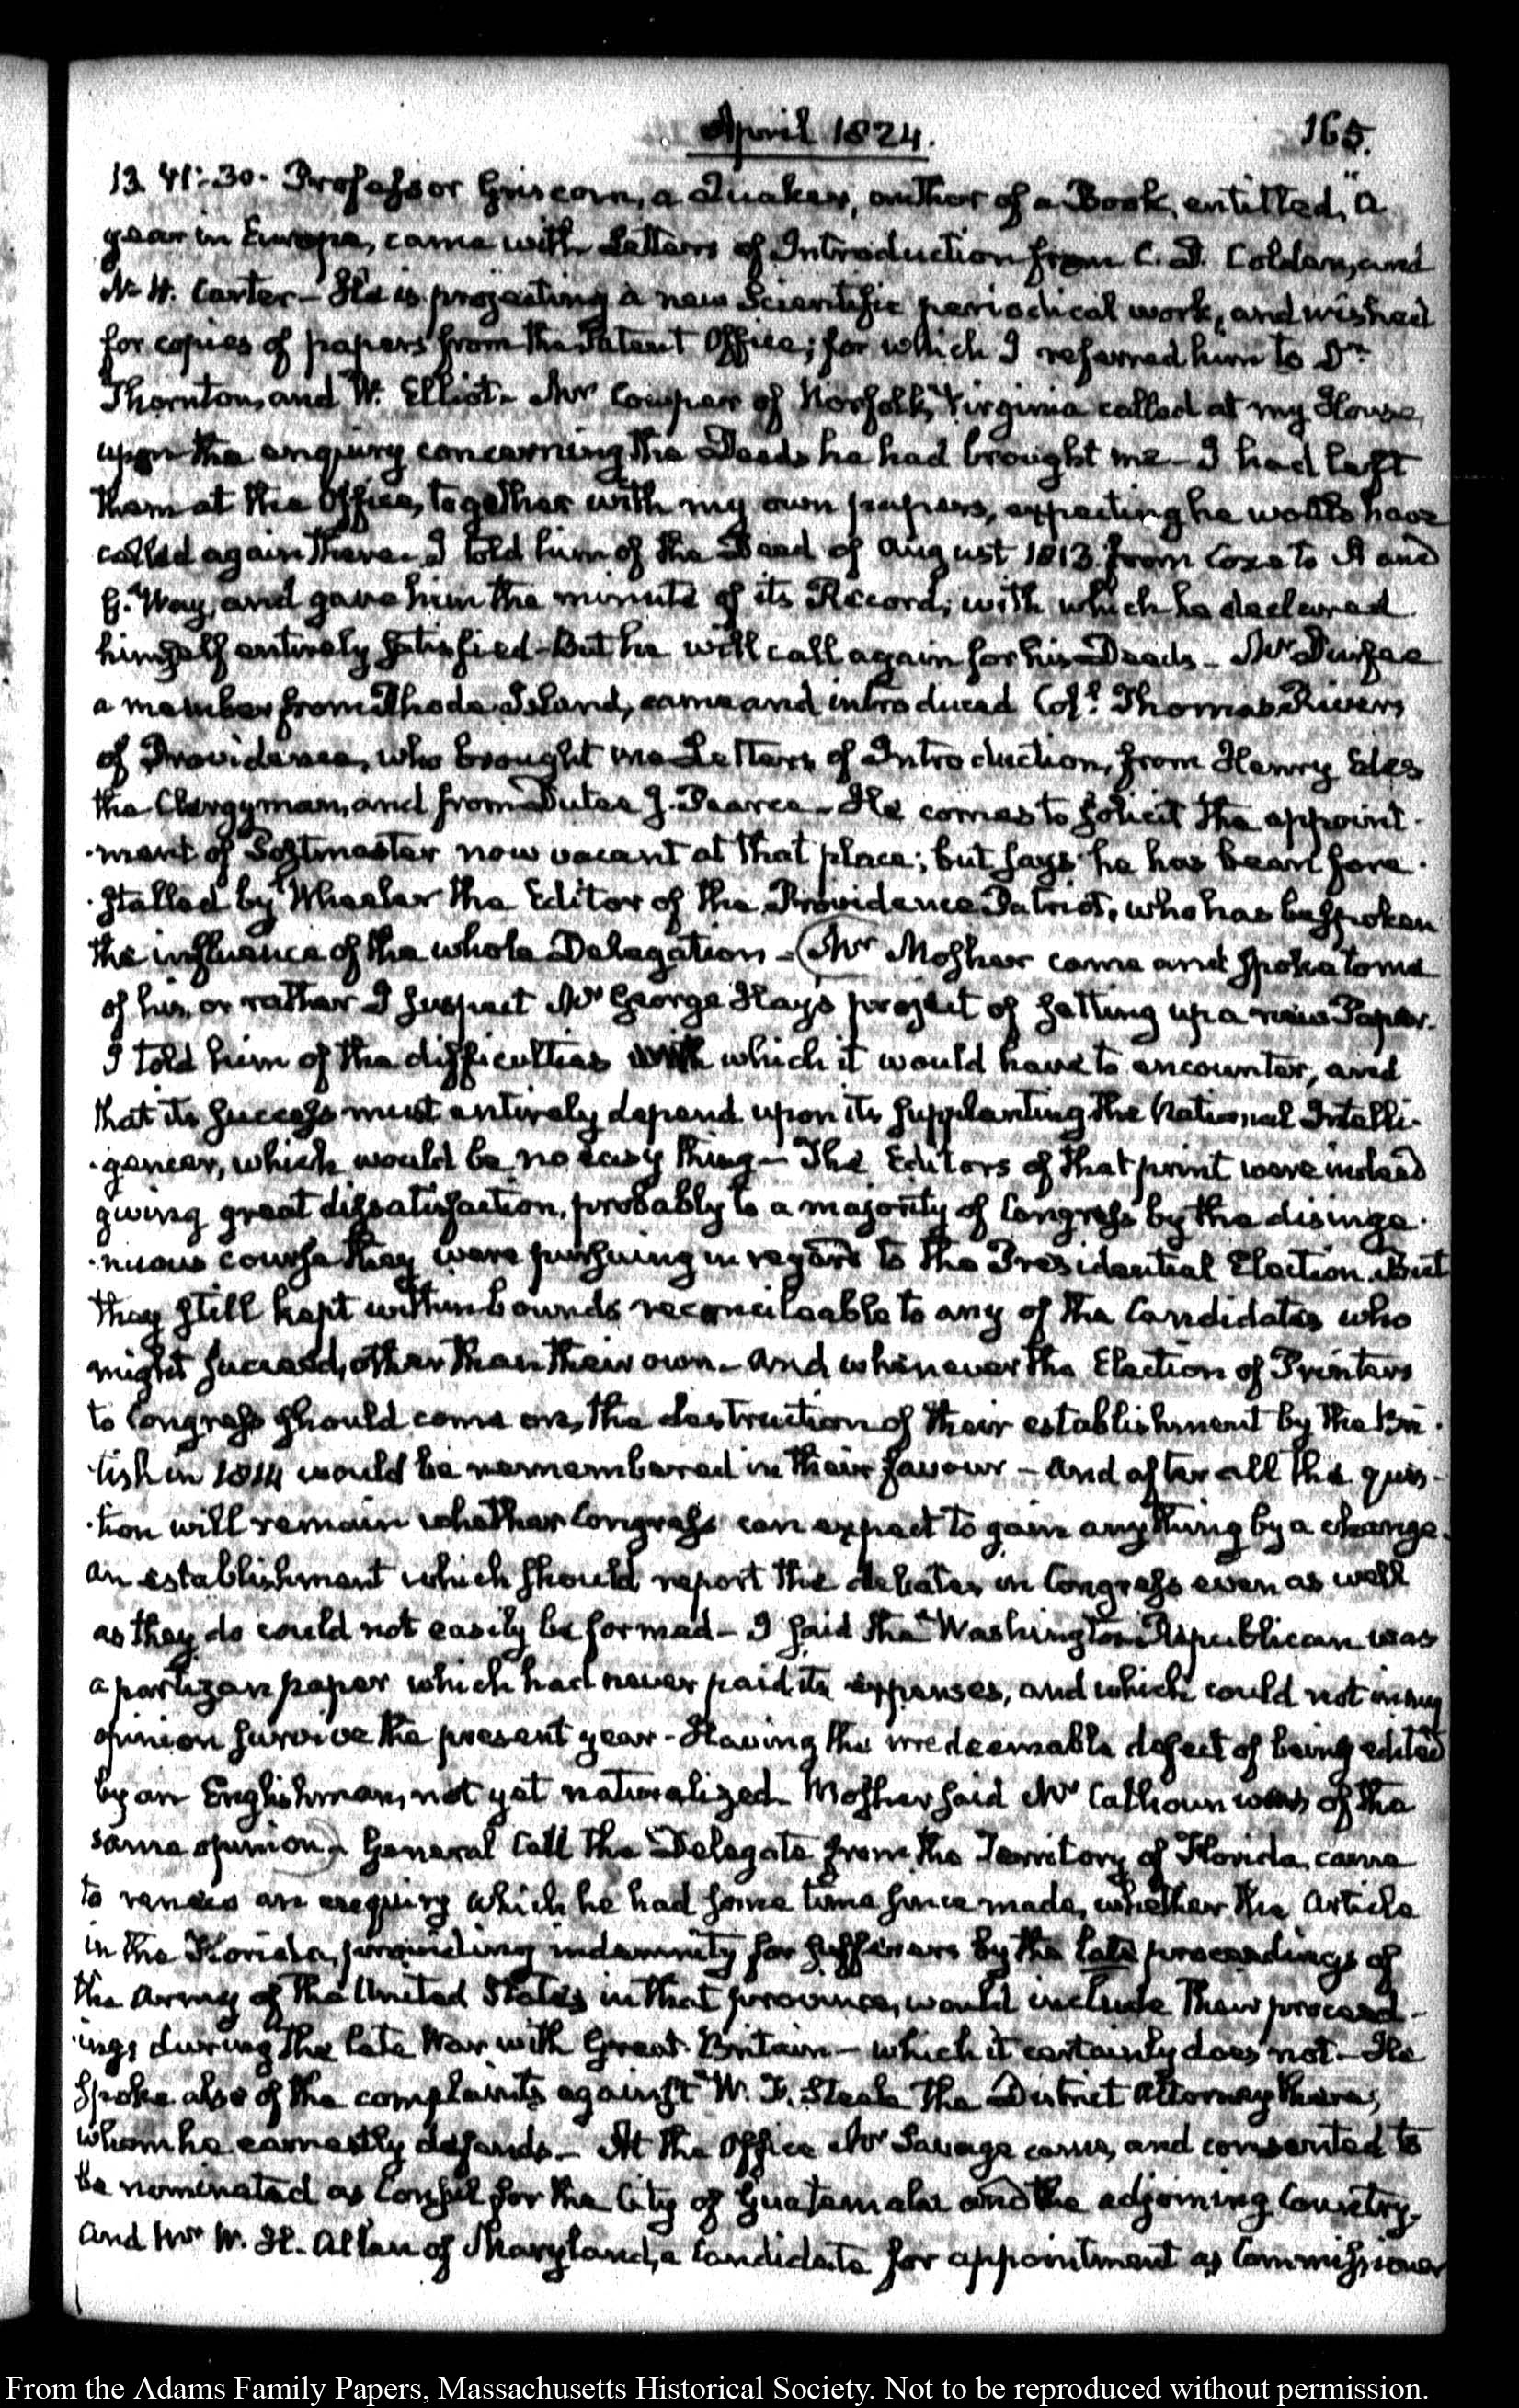 April 1824.
165.
13. VI:30. Professor Griscom, a Quaker, author of a Book, entitled, "a
year in Europe, came with Letters of Introduction from C. D. Colden, and
N. H. Carter— He is projecting a new Scientific periodical work, and wished
for copies of papers from the Patent Office; for which I referred him to Dr.
Thornton, and W. Elliot— Mr Cowper of Norfolk, Virginia called at my House,
upon the enquiry concerning the Deeds he had brought me— I had left
them at the Office, together with my own papers, expecting he would have
called again there. I told him of the Deed of August 1813. from Coxe to A and
G. Way, and gave him the minute of its Record; with which he declared
himself entirely satisfied— But he will call again for his Deeds— Mr Durfee
a member from Rhode-Island, came and introduced Coll. Thomas Rivers
of Providence, who brought me Letters of Introduction, from Henry Edes
the Clergyman, and from Dutee J. Pearce— He comes to solicit the appoint-
-ment of Postmaster now vacant at that place; but says he has been fore-
-stalled by Wheeler the Editor of the Providence Patriot, who has bespoken
the influence of the whole Delegation— (Mr Mosher came and spoke to me
of his, or rather I suspect Mr George Hay's project of setting up a new Paper.
I told him of the difficulties which it would have to encounter, and
that its success must entirely depend upon its supplanting the National Intelli-
-gencer, which would be no easy thing— The Editors of that print were indeed
giving great dissatisfaction, probably to a majority of Congress by the disinge-
-nuous course they were pursuing in regard to the Presidential Election. But
they still kept within bounds reconcileable to any of the Candidates who
might succeed, other than their own— And whenever the Election of Printers
to Congress should come on, the destruction of their establishment by the Bri-
-tish in 1814 would be remembered in their favour— And after all the ques-
-tion will remain whether Congress can expect to gain any thing by a change.
An establishment which should report the debates in Congress even as well
as they do could not easily be formed— I said the Washington Republican was
a partizan paper which had never paid its expenses, and which could not in my
opinion survive the present year— Having the irredeemable defect of being edited
by an Englishman, not yet naturalized— Mosher said Mr Calhoun was of the
same opinion)— General Call the Delegate from the Territory of Florida, came
to renew an enquiry which he had some time since made, whether the Article
in the Florida, providing indemnity for sufferers by the late proceedings of
the Army of the United States in that province, would include their proceed-
-ings during the late War with Great-Britain— which it certainly does not— He
spoke also of the complaints against W. F. Steele the District Attorney there;
whom he earnestly defends— At the Office Mr Savage came, and consented to
be nominated as Consul for the City of Guatemala and the adjoining Country.
And Mr W. H. Allen of Maryland, a Candidate for appointment as Commissioner
From the Adams Family Papers, Massachusetts Historical Society. Not to be reproduced without permission.